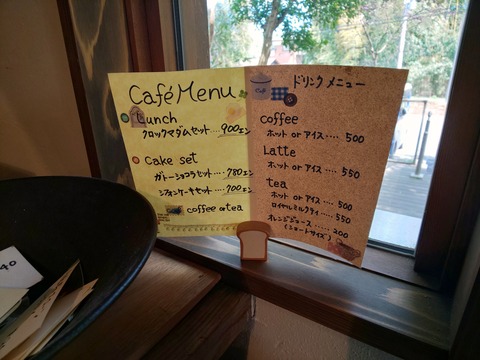 Café Menu
Lunch
クロックマダムセット....900エン
Cake set
ガトーショコラセット....780エン
シフォンケーキセット....700エン
coffee or tea
ドリンクメニュー
coffee
ホット or アイス.... 500
Latte
ホット or アイス.... 550
tea
ホット or アイス.... 500
ロイヤルミルクティ.... 550
オレンジジュース..... 200
(ショートサイズ)
40